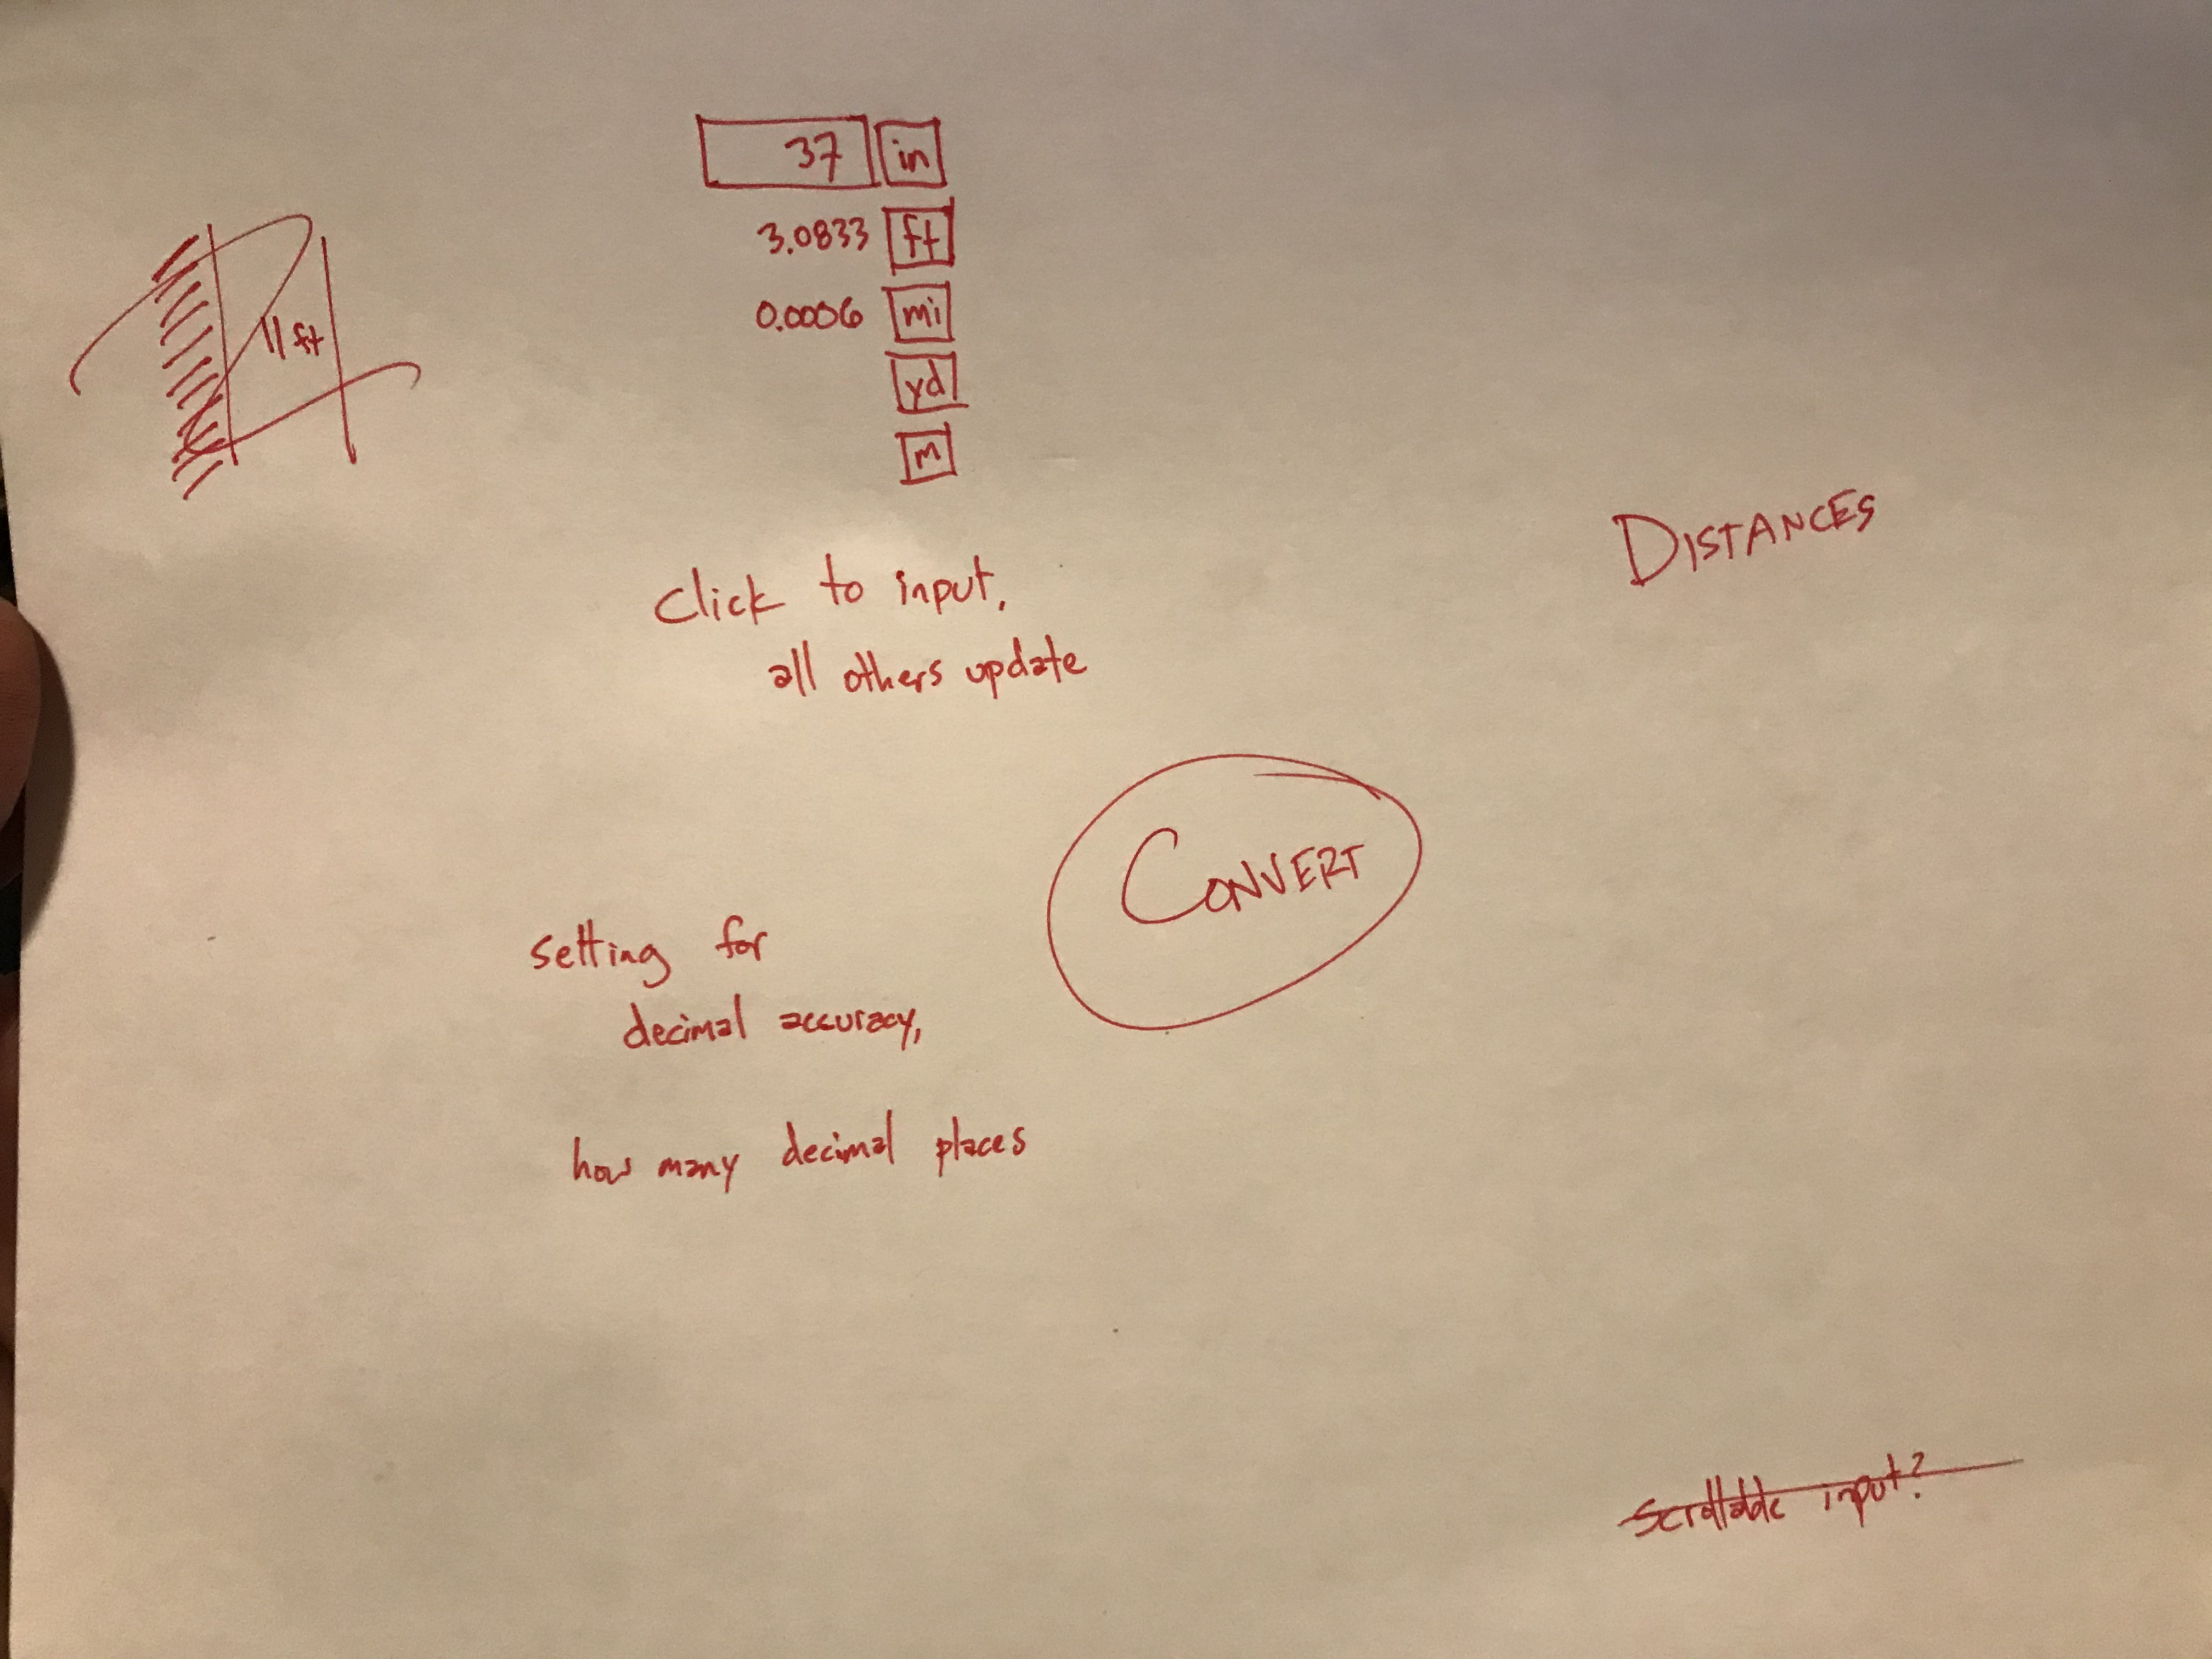 37 in
3.0833 ft
0.0006 mi
yd
m
11 ft
Click to input,
all others update
DISTANCES
CONVERT
setting for
decimal accuracy,
how many decimal places
Scrollable input?